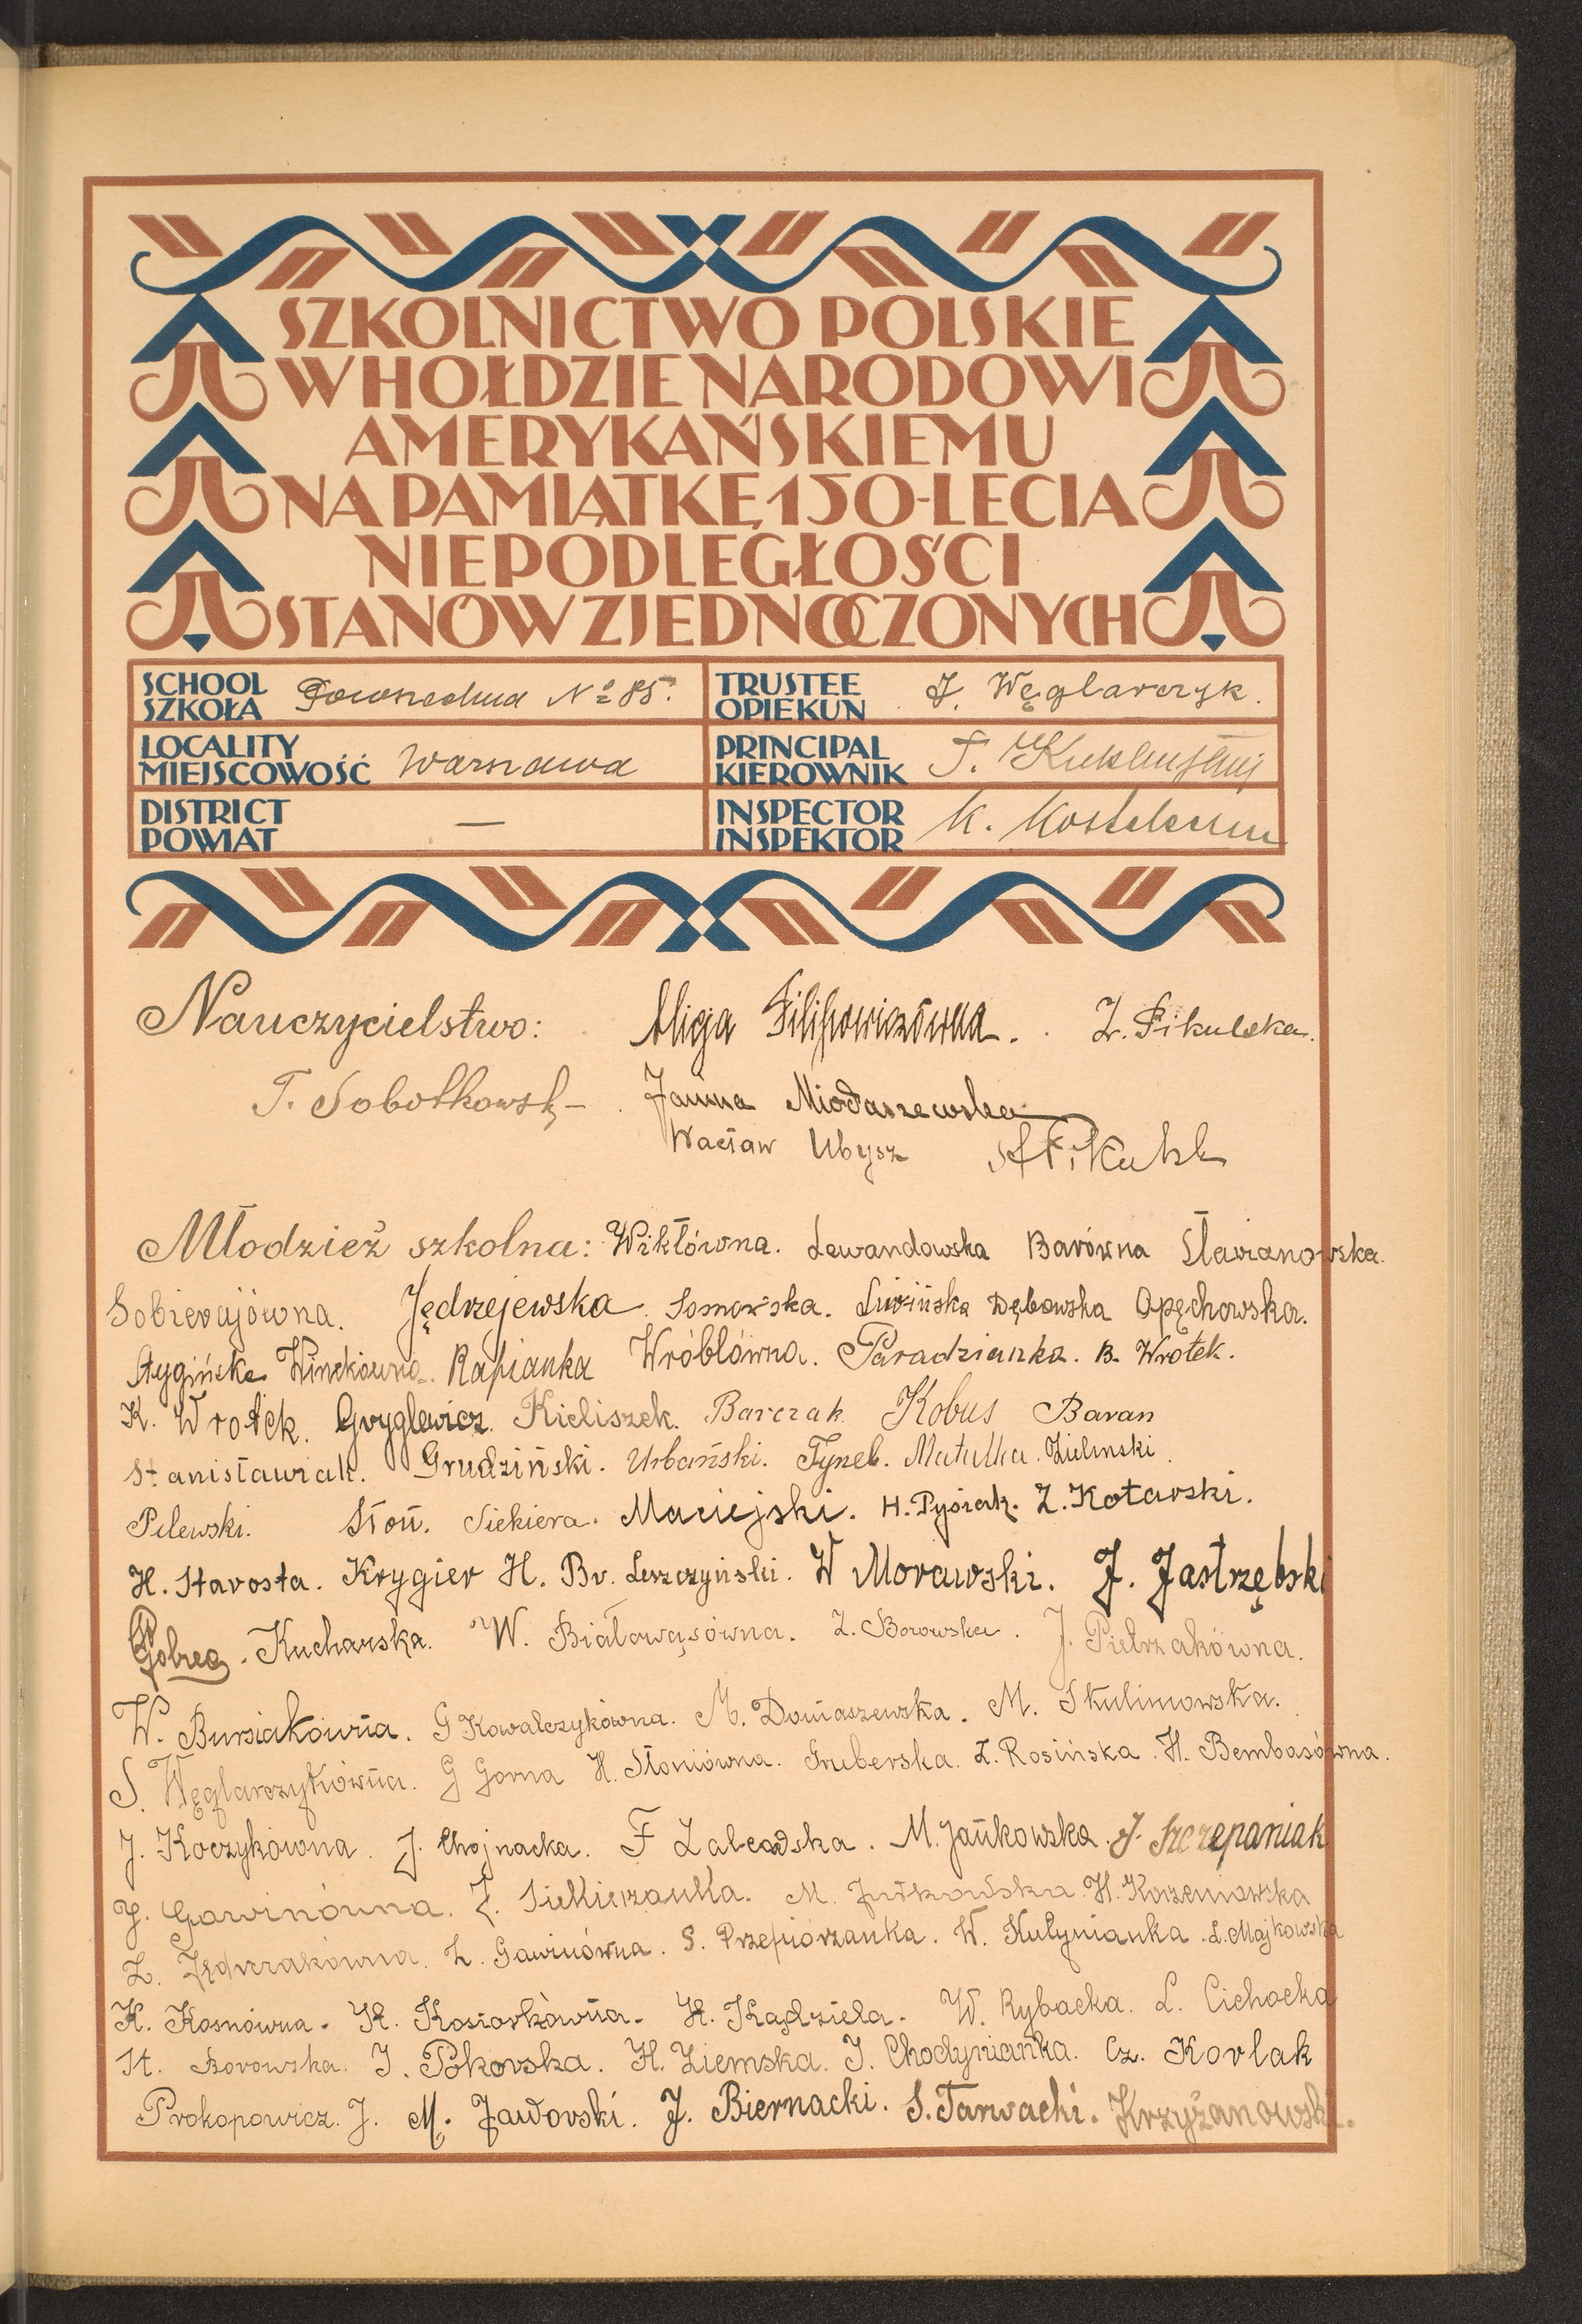 SZKOLNICTWO POLSKIE
W HOŁDZIE NARODOWI
AMERYKAŃSKIEMU
NA PAMIĄTKĘ 150-LECIA
NIEPODLEGŁOŚCI
STANÓW ZJEDNOCZONYCH
SCHOOL
SZKOŁA Powszechna No 85.
TRUSTEE
OPIEKUN J. Węglarczyk.
LOCALITY
MIEJSCOWOŚĆ Warszawa
PRINCIPAL
KIEROWNIK
DISTRICT
POWIAT —
INSPECTOR
INSPEKTOR K.
Nauczycielstwo: Filipowiczówna. Z. Pikulska.
T. Sobotkowski Janina Miodaszewska
Wacław Ubysz
Młodzież szkolna: Wiktówna. Lewandowska Barówna Sławianowska.
Sobierajówna. Jędrzejewska. Dębowska Opęchowska.
Rapianka Wróblówna. Paradzianka. B. Wrotek.
K. Wrotek. Gryglewicz. Kieliszek. Barczak. Kobus Baran
Stanisławiak. Grudziński. Urbański. Tynel. Matulka. Zieliński.
Pilewski. Słoń. Siekiera. Maciejski. H. Pysiak. Z. Kotarski.
H. Starosta. Krygier H. Br. Leszczyński. W Morawski. J. Jastrzębski
Kucharska. W. Białowąsówna. Z. Borowska. J. Pietrzakówna.
W. Bursiakówna. G Kowalczykówna. M. Domaszewska. M. Skulimowska.
S. Węglarczykówna. G Gorna H. Słoniówna. Gruberska. Z. Rosińska. H. Bembasówna.
J. Koczykówna. J. Chojnacka. F M. Jankowska. J. Szczepaniak
J. Gawinówna. Z. Siekierzanka. M. Jutkowska. H. Korzeniowska
Z. Jędrzrakówna. Z. Gawinówna. S. Przepiórzanka. W. Kutynianka. L. Majkowska
K. Kosnówna. H. Kosiorkówna. H. Kądziela. W. Rybacka. L. Cichocka
St. Borowska. J. Pokorska. H. Ziemska. J. Chodynianka. Cz. Korlak
Prokopowicz. J. M. Jaworski. J. Biernacki. S. Tarwacki. Krzyżanowski.